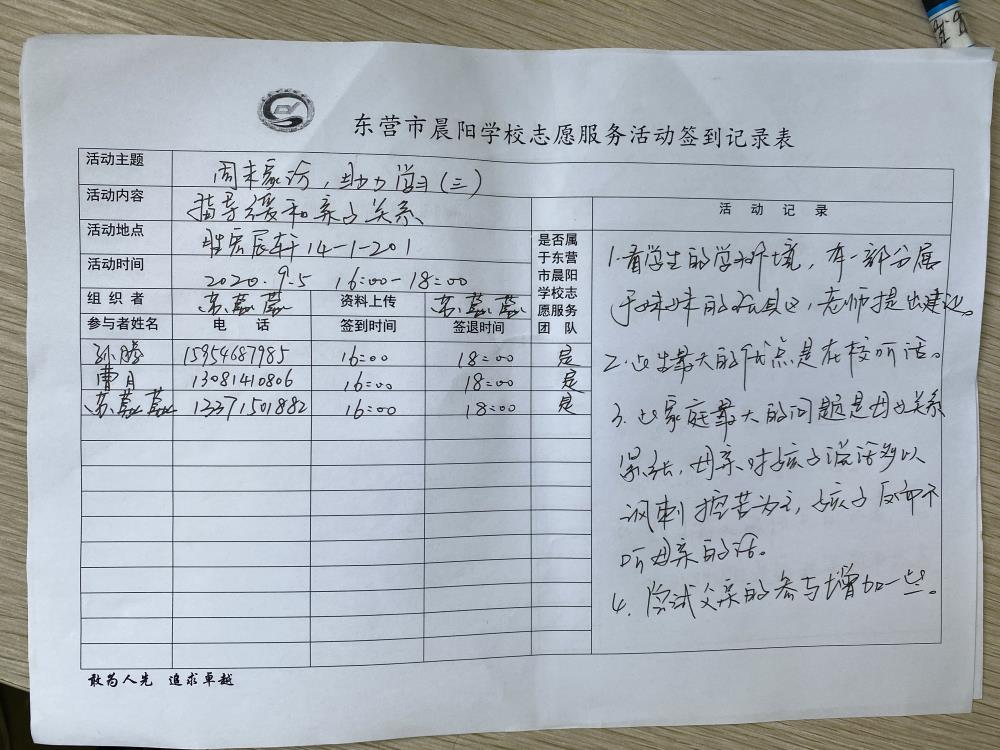 东营市晨阳学校志愿服务活动签到记录表
活动主题 周末家访，助力学习（三）
活动内容 指导缓和亲子关系
活动地点 胜宏辰轩14-1-201
活动时间 2020.9.5 16:00-18:00
组织者 苏蕊蕊 资料上传 苏蕊蕊
参与者姓名 电话 签到时间 签退时间
是否属
于东营
市晨阳
学校志
愿服务
团队
孙腾 15954687985 16:00 18:00 是
曹月 13081410806 16:00 18:00 是
苏蕊蕊 13371501882 16:00 18:00 是
活动记录
1.看学生的学习环境，有一部分属
于妹妹的玩具区，老师提出建议。
2.此生最大的优点是在校听话。
3.此家庭最大的问题是母女关系
紧张，母亲对孩子说话多以
讽刺挖苦为主，孩子反而不
听母亲的话。
4.尝试父亲的参与增加一些。
敢为人先 追求卓越